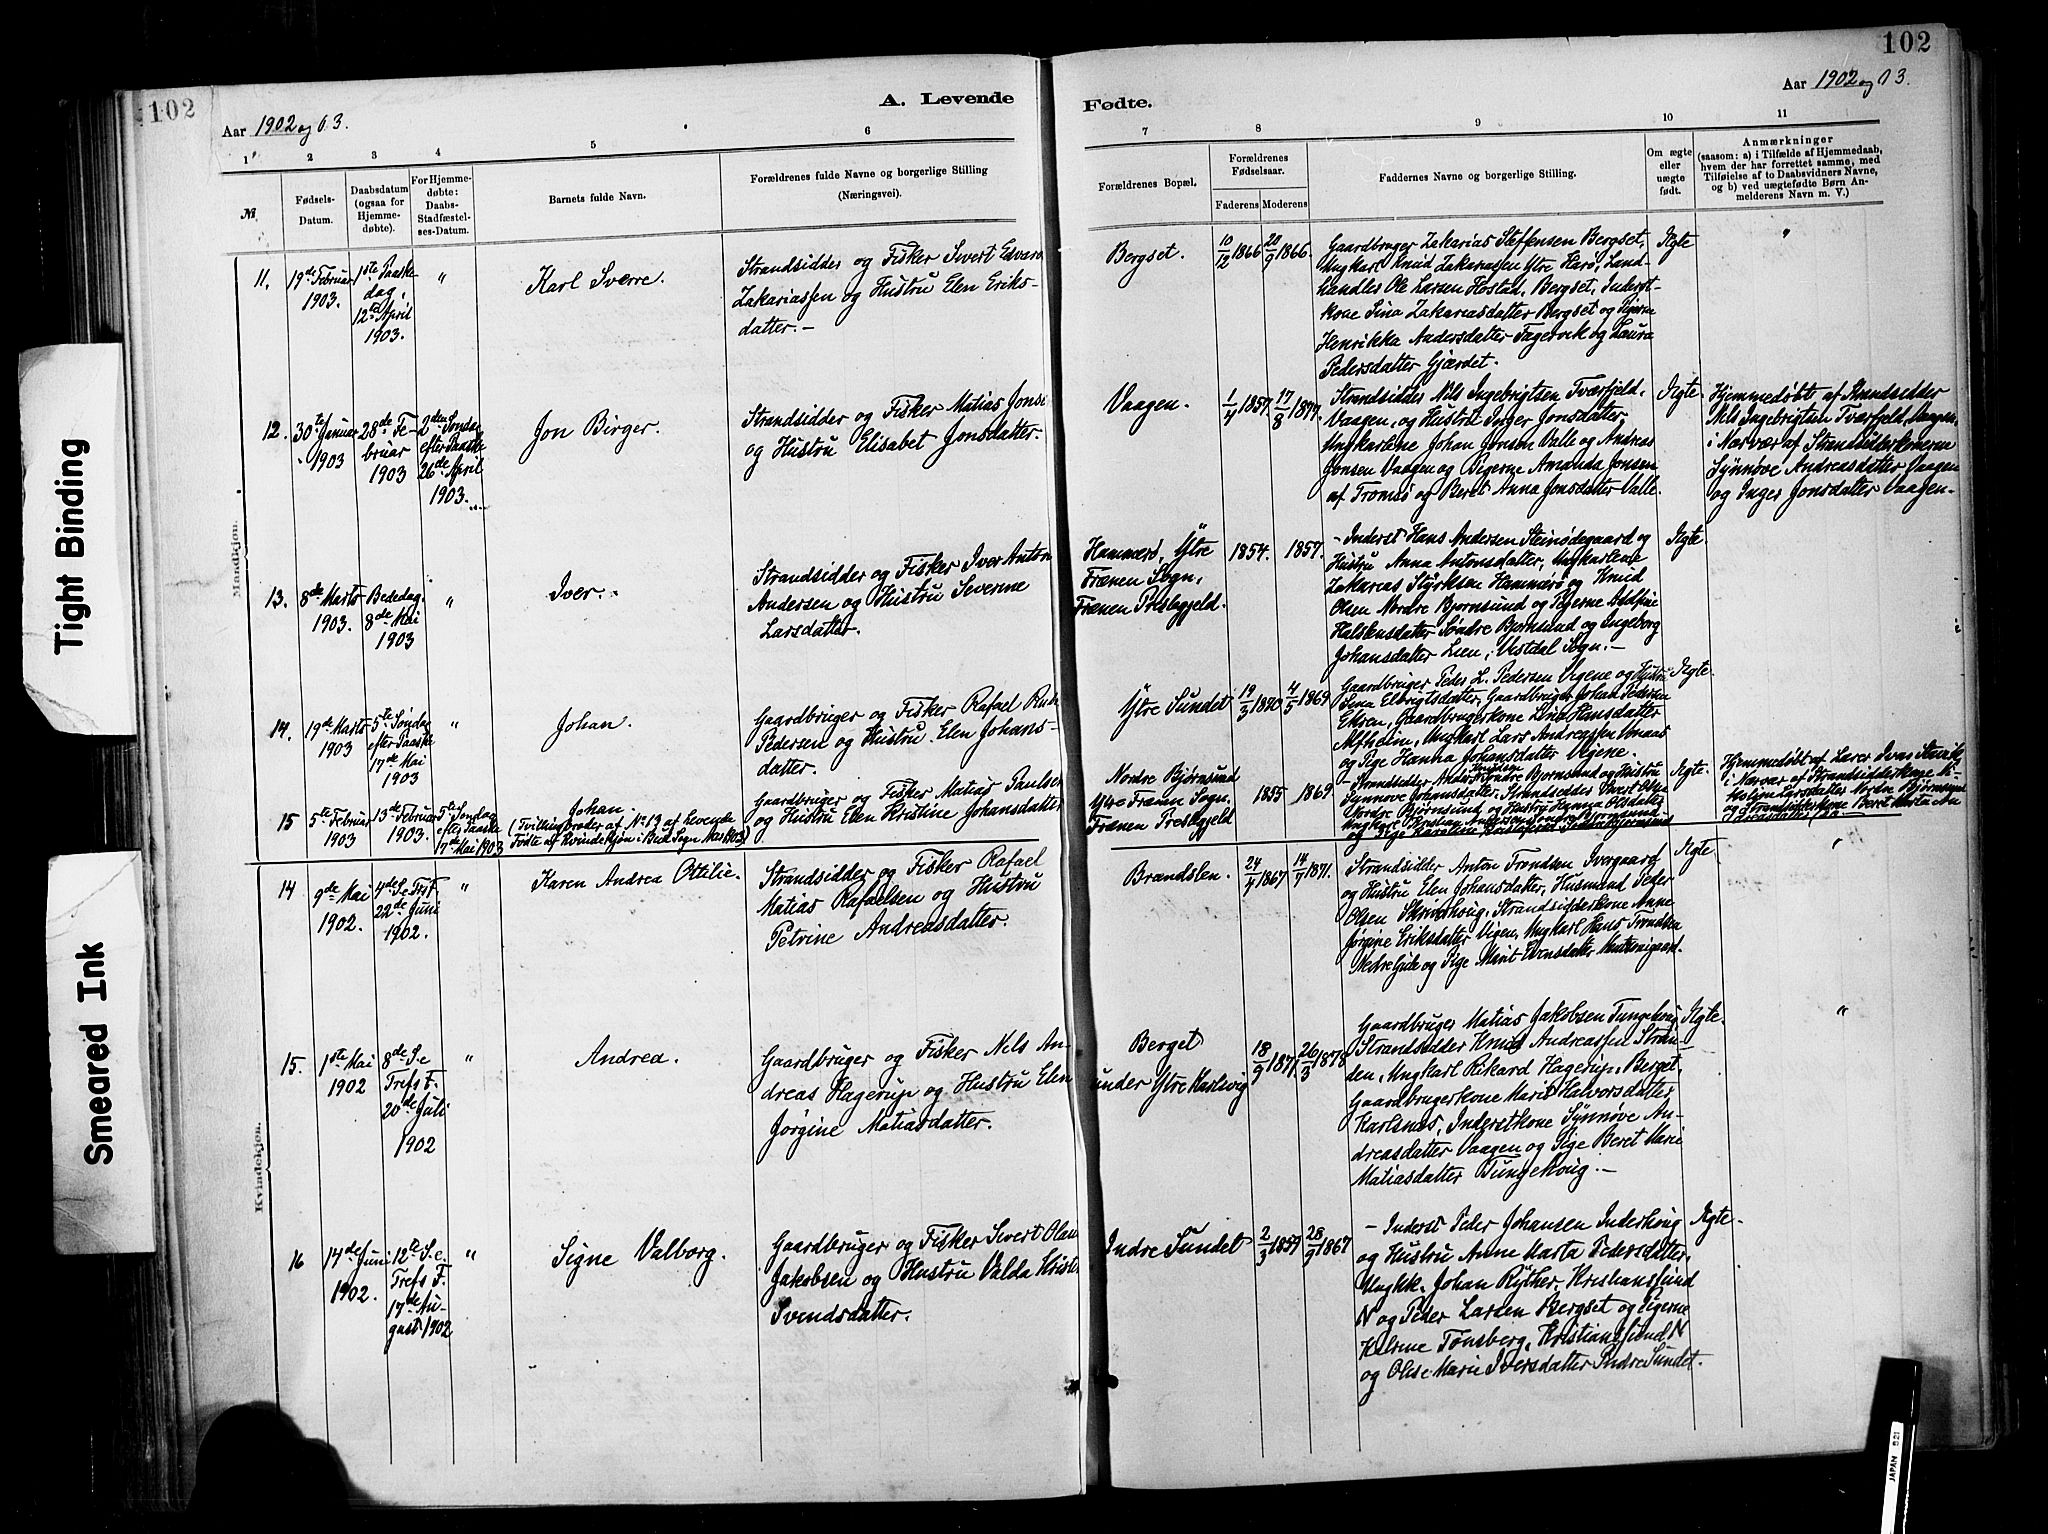 102
A. Levende
Aar 1902 og 03.
1 2 3 4 5 6
№
Fødsels-
Datum.
Daabsdatum
(ogsaa for
Hjemme-
døbte).
For Hjemme-
døbte:
Daabs-
Stadfæstel-
ses-Datum.
Barnets fulde Navn.
Forældrenes fulde Navne og borgerlige Stilling
(Næringsvei).
Mandkjøn.
11.
19de Februar
1903.
1ste Paaske
dag,
12te April
1903.
"
Karl Sverre.
Strandsidder og Fisker Sivert Edvard
Zakariassen og Hustru Elen Eriks-
datter.-
12.
30te Januar
1903
28de Fe-
bruar
1903
2den Søndag
efter Paaske
26de April
1903.
Jon Birger.
Strandsidder og Fisker Matias Jonsen
og Hustru Elisabet Jonsdatter.
13.
8de Marts
1903.
Bededag.
8de Mai
1903
"
Iver.
Strandsidder og Fisker Iver Anton
Andersen og Hustru Severine
Larsdatter.
14.
19de Marts
1903
5te Søndag
efter Paaske
17de Mai
1903
"
Johan.
Gaardbruger og Fisker Rafael
Pedersen og Hustru Elen Johans-
datter.
15
5te Februar
1903
13de Februar
1903.
5te Søndag
efter Paaske
17de Mai 1903
Johan.
(Tvillingbroder af No 13 af Levende
Fødte af Kvindekjøn i Bud Sogn
Gaardbruger og Fisker Matias Paulsen
og Hustru Elen Kristine Johansdatter
Kvindekjøn.
14
9de Mai
1902.
4de S.e. Tref.
22de Juni
1902.
"
Karen Andrea Ottilie.
Strandsidder og Fisker Rafael
Matias Rafaelsen og Hustru
Petrine Andreasdatter.
15.
1ste Mai
1902
8de S.e
Tref. F.
20de Juli
1902
"
Andrea.
Gaardbruger og Fisker Nels An-
dreas Hagerup og Hustru Elen
Jørgine Matiasdatter.
16
14de Juni
1902.
12te S.e.
Tref. F.
17de Au-
gust 1902
"
Signe Valborg.
Gaardbruger og Fisker Sivert Olaus
Jakobsen og Hustru Valda
Svendsdatter.
102
Fødte.
Aar 1902 og 03.
7 8 9 10 11
Forældrenes Bopæl.
Forældrenes
Fødselsaar.
Faderens Moderens
Faddernes Navne og borgerlige Stilling.
Om ægte
eller
uægte
født.
Anmærkninger
(saasom: a) i Tilfælde af Hjemmedaab,
hvem der har forrettet samme, med
Tilføielse af to Daabsvidners Navne,
og b) ved uægtefødte Børn An-
melderens Navn m. V.)
Bergset.
10/12 1866
20/9 1866.
Gaardbruger Zakarias Steffensen Bergset,
Ungkarl Knud Zakariassen Ytre Harø, Land-
handler Ole Larsen Hostad, Bergset, Inderst-
kone Sina Zakariasdatter Bergset og Pigerne
Henrikka Andersdatter Fagervik og Laura
Pedersdatter Gjærdet.
Ægte
"
Vaagen.
1/4 1857.
17/8 1877.
Strandsidder Nils Ingebrigtsen Tværfjeld,
Vaagen, og Hustru Inger Jonsdatter,
Ungkarlene Johan Jonsen Valle og Andreas
Jonsen Vaagen og Pigerne Amanda Jonsen
af Tromsø og Beret Anna Jonsdatter Valle.
Ægte.
Hjemmedøbt af Strandsidder
Nils Ingebrigtsen Tværfjeld, Vaagen,
i Nærvær af Strandsidderkonerne
Synnøve Andreasdatter Vaagen
og Inger Jonsdatter Vaagen-
Hammerø, Ytre
Frænen Sogn,
Frænen Præstegjeld.
1854.
1857.
- Inderst Hans Andersen Steinødegaard og
Hustru Anna Antonsdatter, Ungkarlene
Zakarias Styrksen Hammerø og Knud
Olsen Nordre Bjørnsund og Pigerne
Halstensdatter Søndre Bjørnsund og Ingeborg
Johansdatter Lien, Vestdal Sogn.-
Ægte.
Ytre Sundet
19/3
4/5 1869
Gaardbruger Peder L. Pedersen Vigene og Hustru
Sina Elbrigtsdatter, Gaardbruger Johan Pedersen
Ekren, Gaardbrugerkone Lina Hansdatter
Alfheim, Ungkarl Lars Andreassen
og Pige Hanna Johansdatter Vigene.
Ægte.
Nordre Bjørnsund
Ytre Frænen Sogn,
Frænen Præstegjeld
1855
1869
- Strandsidder Anders Søndre Bjørnsund og Hustru
Synnøve Johansdatter, Strandsidder
Nordre Bjørnsund og Hustru Hanna Olsdatter
Ægte.
Hjemmedøbt af Lærer
i Nærvær af Strandsidderkone
Larsdatter Nordre Bjørnsund
og Strandsidderkone Beret Marta An
Brandslen.
24/4 1867
14/7 1871.
Strandsidder Anton Trondsen Ivergaard
og Hustru Elen Johansdatter, Husmand Peder
Olsen Skrivhoug, Strandsidderkone Anne
Jørgine Eriksdatter Vigene, Ungkarl Hans Trondsen
Nedre Gule og Pige Marit
Ægte.
"
Berget
under Ytre Karlsvig
18/9
26/3 1878
Gaardbruger Matias Jakobsen Tungehoug
Strandsidder Knud Andreassen Stran-
den, Ungkarl Rikard Hagerup, Berget,
Gaardbrugerkone Marie Halvorsdatter
Karlsnes, Inderstkone Synnøve An-
dreasdatter Vaagen og Pige Beret Marie
Matiasdatter Tungehoug.-
Ægte.
"
Indre Sundet
2/3 1859
28/9 1867
- Inderst Peder Johansen Inderhoug
og Hustru Anne Marta Pedersdatter,
Ungkk. Johan Rÿther, Kristiansund
N og Peder Larsen Bergset og Pigerne
Helene Tønsberg, Kristiansund N
og Oline Marie Iversdatter Indre Sundet.
Ægte.
Tight Binding
Smeared Ink
JAPAN 821